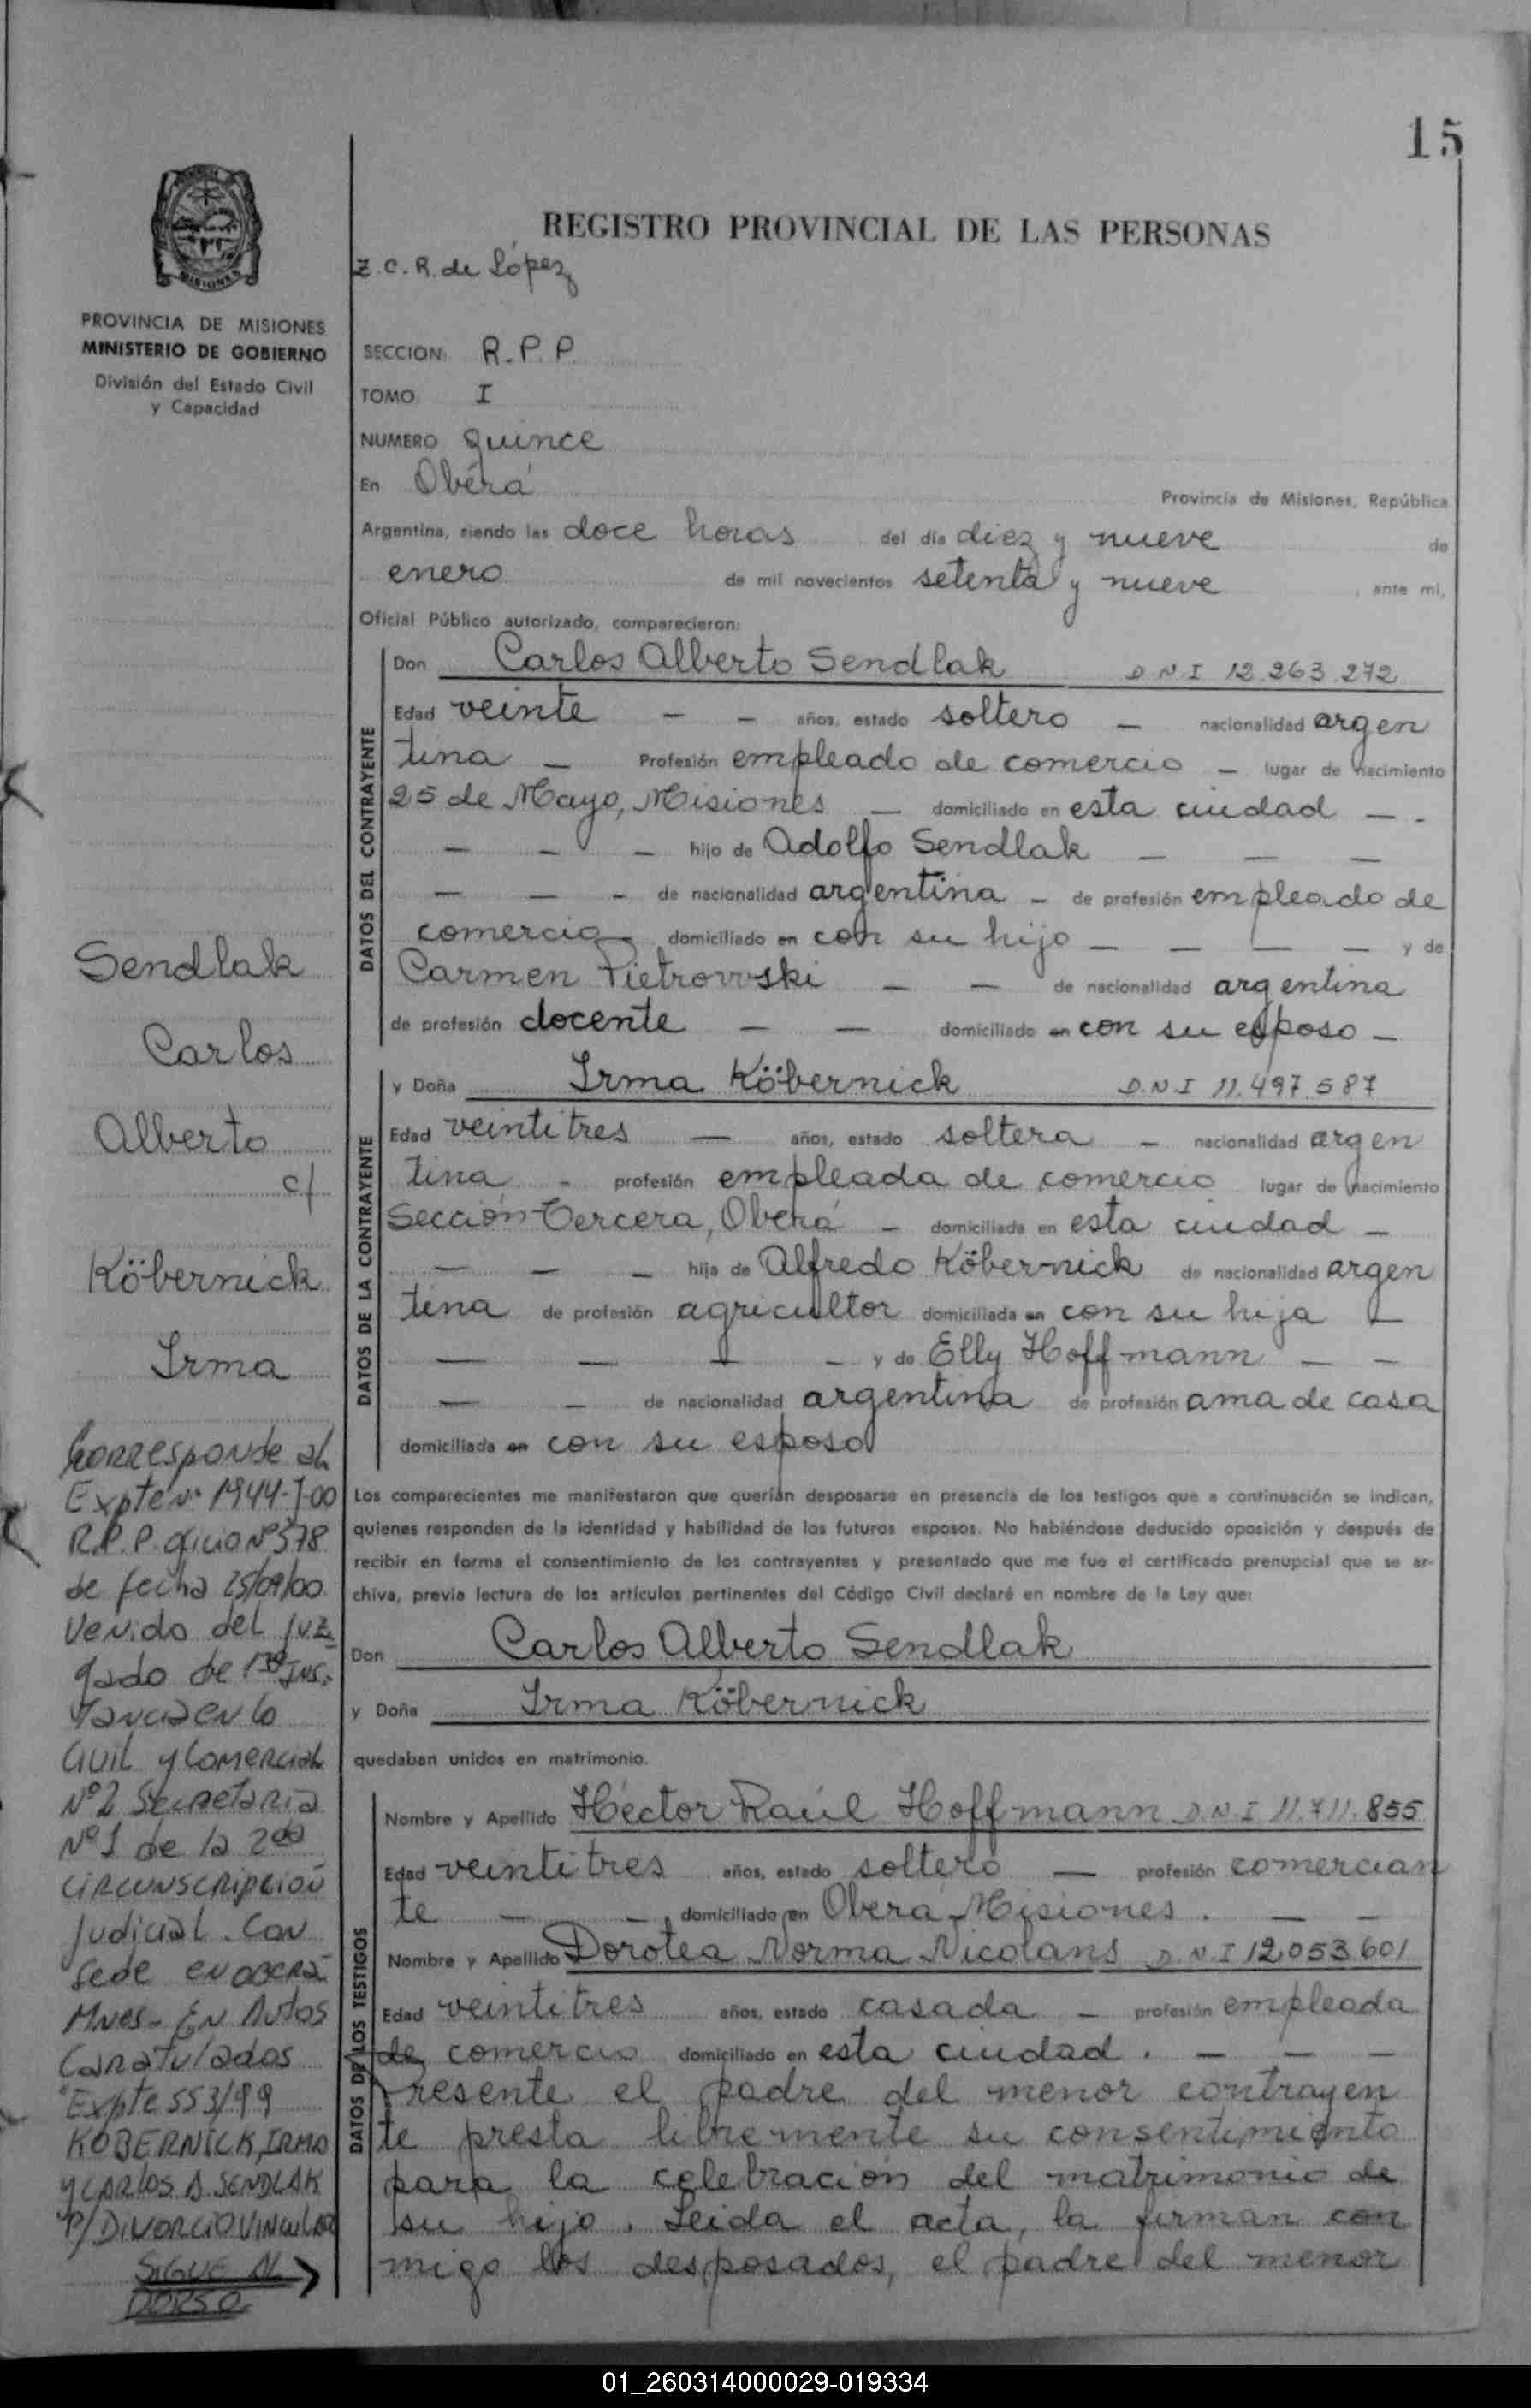 15
REGISTRO PROVINCIAL DE LAS PERSONAS
Z.C.R. de López
MISIONES
PROVINCIA DE MISIONES
MINISTERIO DE GOBIERNO
División del Estado Civil
y Capacidad
SECCION: R.P.P.
TOMO I
NUMERO quince
En Oberá
Provincia de Misiones, República
Argentina, siendo las doce horas del día diez y nueve de
enero de mil novecientos setenta y nueve, ante mí,
Oficial Público autorizado, comparecieron:
DATOS DEL CONTRAYENTE
Don Carlos Alberto Sendlak D.N.I 12.263.272
Edad veinte — — años, estado soltero — nacionalidad argen
tina — Profesión empleado de comercio — lugar de nacimiento
25 de Mayo, Misiones — domiciliado en esta ciudad — -
— — — hijo de Adolfo Sendlak — — —
— — - de nacionalidad argentina - de profesión empleado de
comercio - domiciliado en con su hijo — — — — y de
Carmen Pietrowski — — de nacionalidad argentina
de profesión docente — — domiciliado en con su esposo —
DATOS DE LA CONTRAYENTE
y Doña Irma Köbernick D.N.I 11.497.587
Edad veintitres — años, estado soltera — nacionalidad argen
tina - profesión empleada de comercio lugar de nacimiento
Sección Tercera, Oberá — domiciliada en esta ciudad —
— — — hija de Alfredo Köbernick de nacionalidad argen
tina de profesión agricultor domiciliada en con su hija —
— — — — y de Elly Hoffmann — —
— — de nacionalidad argentina de profesión ama de casa
domiciliada en con su esposo
Los comparecientes me manifestaron que querían desposarse en presencia de los testigos que a continuación se indican,
quienes responden de la identidad y habilidad de los futuros esposos. No habiéndose deducido oposición y después de
recibir en forma el consentimiento de los contrayentes y presentado que me fue el certificado prenupcial que se ar-
chiva, previa lectura de los artículos pertinentes del Código Civil declaré en nombre de la Ley que:
Don Carlos Alberto Sendlak
y Doña Irma Köbernick
quedaban unidos en matrimonio.
DATOS DE LOS TESTIGOS
Nombre y Apellido Héctor Raúl Hoffmann D.N.I 11.711.855
Edad veintitres años, estado soltero — profesión comercian
te — —, domiciliado en Oberá - Misiones. — —
Nombre y Apellido Dorotea Norma Nicolans D.N.I 12.053.601
Edad veintitres años, estado casada — profesión empleada
de comercio domiciliado en esta ciudad. — — —
Presente el padre del menor contrayen
te presta libremente su consentimiento
para la celebración del matrimonio de
su hijo. Leida el acta, la firman con
migo los desposados, el padre del menor
Sendlak
Carlos
Alberto
c/
Köbernick
Irma
Corresponde al
Expte nº 1944-J-00
R.P.P. oficio Nº 378
de fecha 25/09/00
Venido del Juz
gado de 1ra Ins-
tancia en lo
Civil y Comercial
Nº 2 Secretaria
Nº 1 de la 2da
circunscripción
Judicial. Con
sede en OBERÁ
Mnes- En Autos
Caratulados
"Expte 553/99
KOBERNICK, IRMA
Y CARLOS A. SENDLAK
P/ DIVORCIO VINCULAR
SIGUE AL
DORSO
01_260314000029-019334